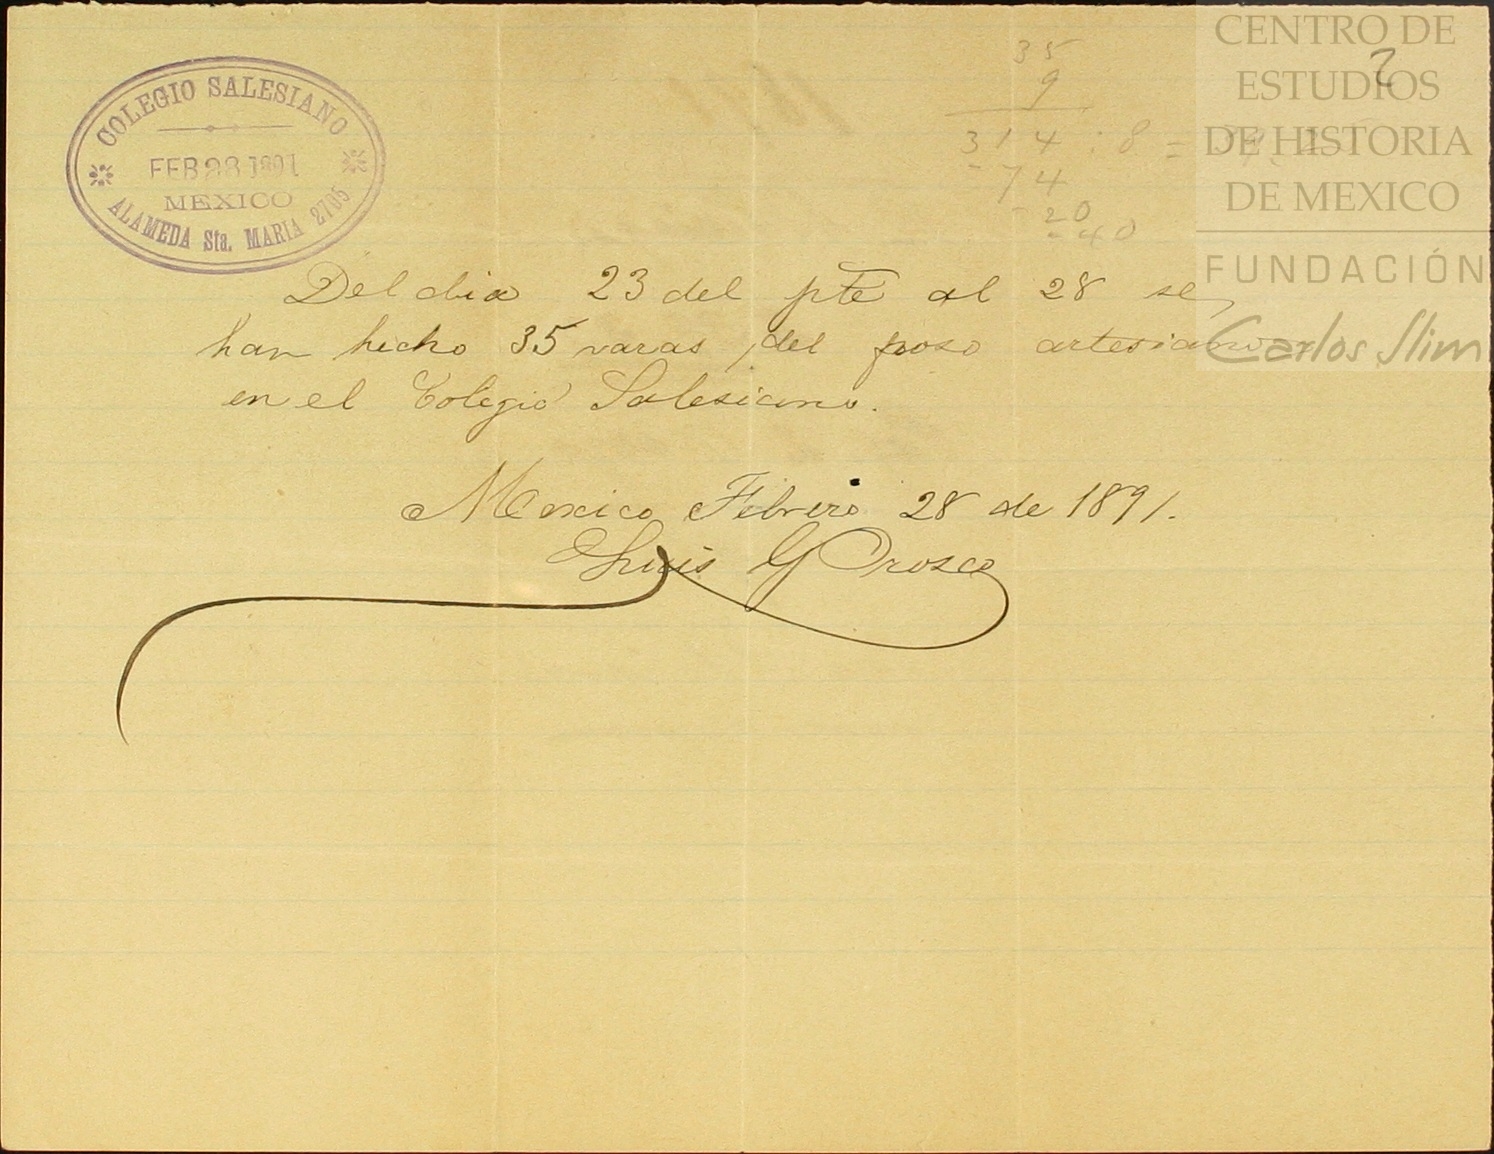 COLEGIO SALESIANO
FEB 28 1891
MEXICO
ALAMEDA Sta. MARIA 2705
35
9
314 : 8 =
-74
-20
-40
2
CENTRO DE
ESTUDIOS
DE HISTORIA
DE MEXICO
FUNDACIÓN
Carlos Slim
Del dia 23 del pte al 28 se
han hecho 35 varas del poso artesiano
en el Colegio Salesiano.
Mexico Febrero 28 de 1891.
Luis G Orosco